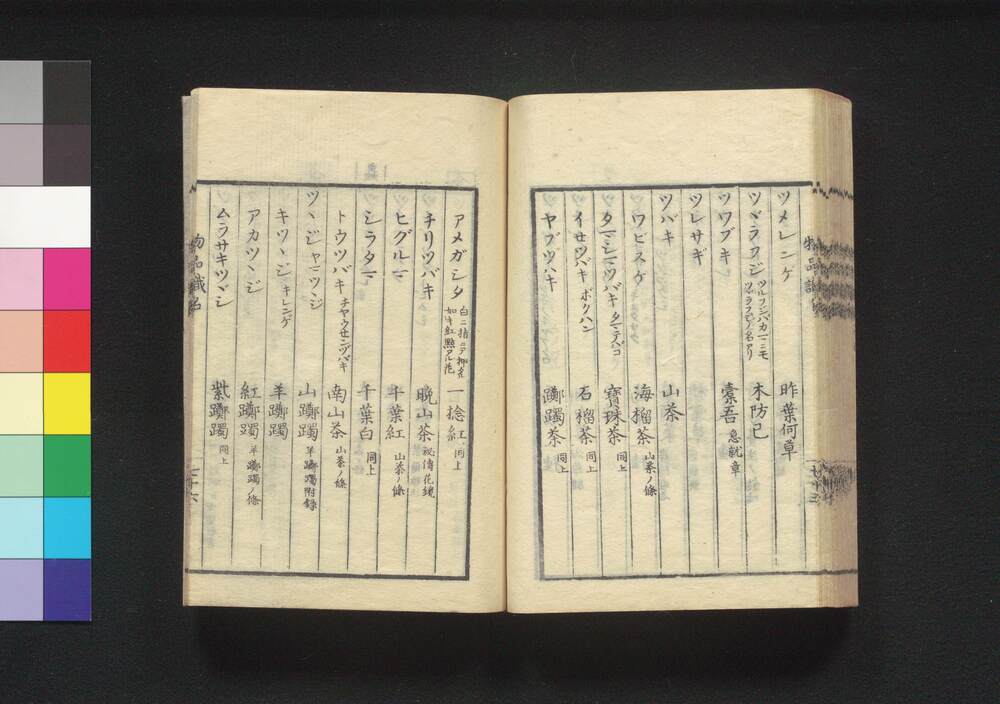 ツメレンゲ 昨葉何草
ツヾラフジ 木防已
ツワブキ 橐吾 急就章
ツレサギ
ツバキ 山茶
ワビスケ 海榴茶 山茶ノ條
タマシマツバキ タマテバコ 寶珠茶 同上
イセツバキ ボクハン 石榴茶 同上
ヤブツハキ 躑躅茶 同上
アメガシタ 一捻紅 同上
チリツバキ 晩山茶 秘傳花鏡
ヒグルマ 千葉紅 山茶ノ條
シラタマ 千葉白 同上
トウツバキ チヤウセンツバキ 南山茶 山茶ノ條
ツヽジ ヤマツヽジ 山躑躅 羊躑躅附録
キツヽジ キレンゲ 羊躑躅
アカツヽジ 紅躑躅 羊躑躅ノ條
ムラサキツヽジ 紫躑躅 同上
物品識名
七十六